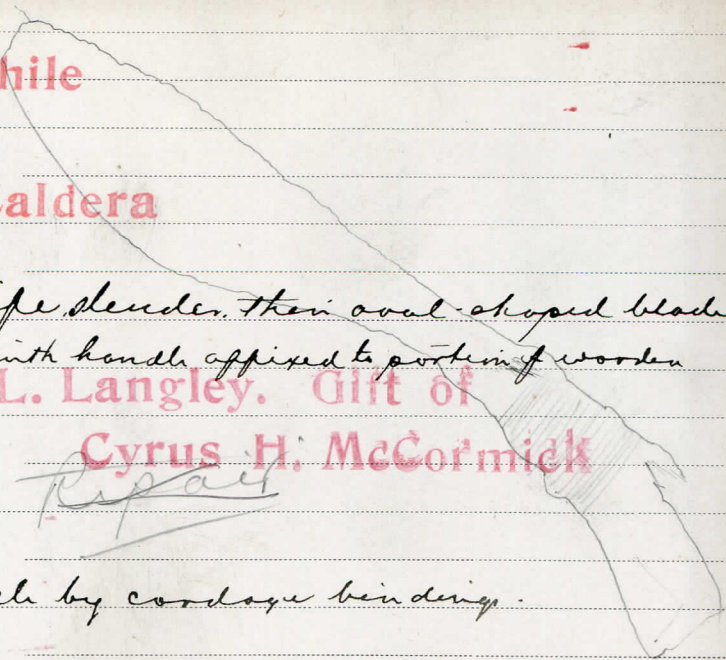 hile
aldera
pe, slender, thin oval-shaped blade
with handle affixed to portion of wooden
L. Langley. Gift of
Cyrus H. McCormick
Repair
by cordage bindings.